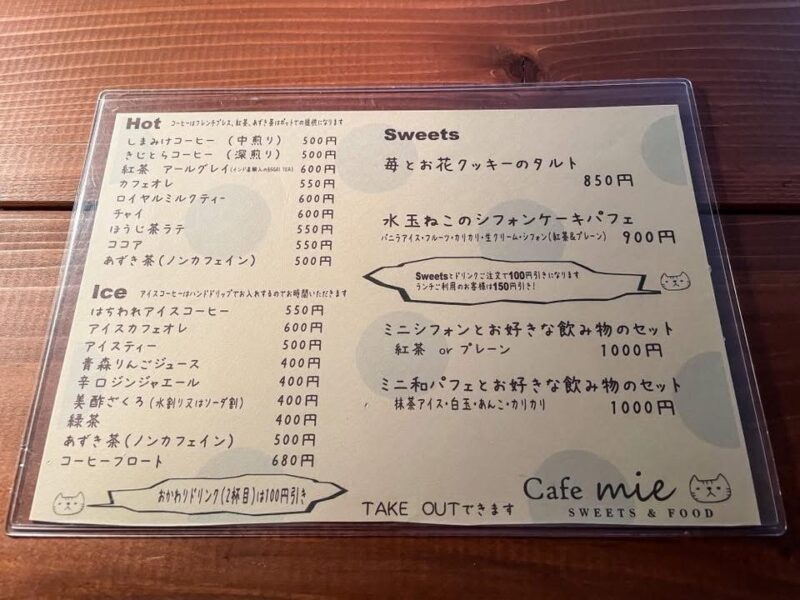 Hot コーヒーはフレンチプレス、紅茶、あずき茶はポットでの提供になります
しまみけコーヒー (中煎り) 500円
きじとらコーヒー (深煎り) 500円
紅茶 アールグレイ 600円
カフェオレ 550円
ロイヤルミルクティー 600円
チャイ 600円
ほうじ茶ラテ 550円
ココア 550円
あずき茶(ノンカフェイン) 500円
Ice アイスコーヒーはハンドドリップでお入れするのでお時間いただきます
はちわれアイスコーヒー 550円
アイスカフェオレ 600円
アイスティー 500円
青森りんごジュース 400円
辛口ジンジャエール 400円
美酢ざくろ (水割り又はソーダ割) 400円
緑茶 400円
あずき茶(ノンカフェイン) 500円
コーヒーフロート 680円
おかわりドリンク(2杯目)は100円引き
Sweets
苺とお花クッキーのタルト
850円
水玉ねこのシフォンケーキパフェ
バニラアイス・フルーツ・カリカリ・生クリーム・シフォン(紅茶&プレーン) 900円
Sweetsとドリンクご注文で100円引きになります
ランチご利用のお客様は150円引き!
ミニシフォンとお好きな飲み物のセット
紅茶 or プレーン 1000円
ミニ和パフェとお好きな飲み物のセット
抹茶アイス・白玉・あんこ・カリカリ 1000円
TAKE OUTできます
Cafe mie
SWEETS & FOOD